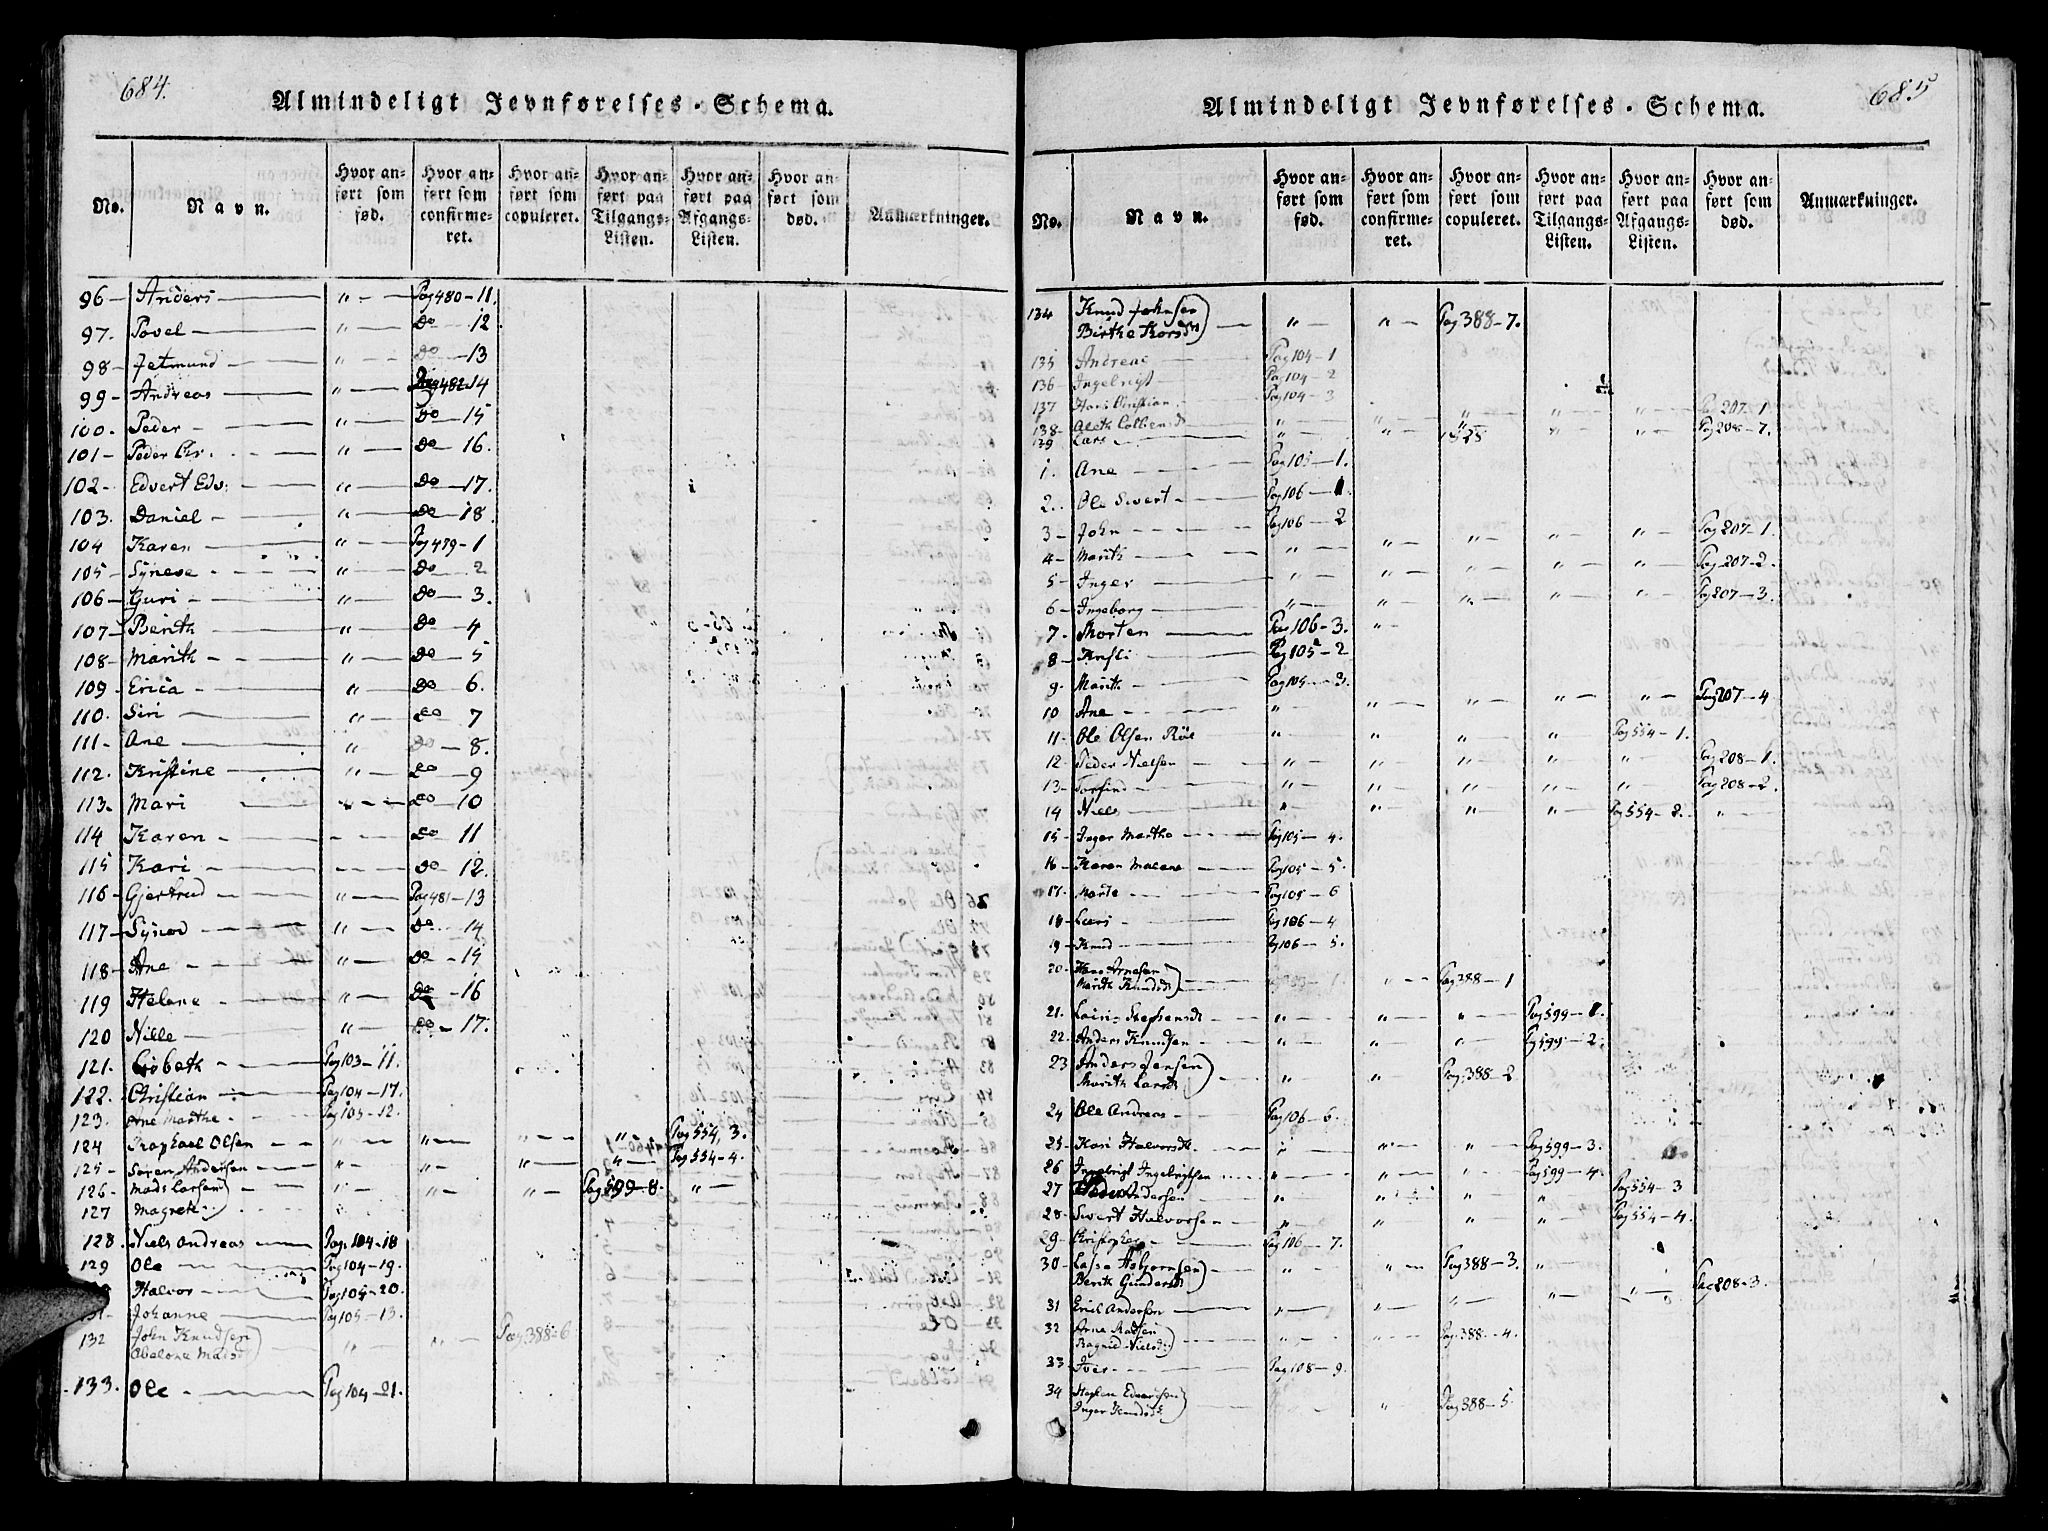 684.
Almindeligt Jevnførelses-Schema.
No. Navn. Hvor anført som fød. Hvor anført som confirmeret. Hvor anført som copuleret. Hvor anført paa Tilgangs-Listen. Hvor anført paa Afgangs-Listen. Hvor anført som død. Anmærkninger.
96 - Anders " Pag 480 - 11.
97. Povel " Do 12
98 - Jetmund " Do 13
99 - Andreas " Pag 482 - 14
100. Peder " Do - 15
101 - Peder Chr. " Do - 16.
102 - Edvert Edv: " Do - 17.
103. Daniel " Do - 18.
104 Karen " Pag 479 - 1
105 - Syneve " Do 2
106 - Guri " Do - 3.
107 - Berith " Do - 4
108 - Marith " Do - 5
109 - Erica " Do - 6.
110. Siri " Do 7
111 - Ane " Do - 8.
112. Kristine " Do - 9
113 - Mari " Do - 10
114 Karen Do 11
115 Kari Do 12.
116 - Gjertrud " Pag 481 - 13
117 - Synov " Do 14
118 - Ane " Do - 15
119 Helene " Do - 16
120 Nille " Do - 17.
121. Lisbeth Pag 103 - 11.
122. Christian Pag 104 - 17.
123. Ane Marthe Pag 105 - 12.
124 Raphael Olsen " " " " Pag 554, 3.
125 - Søren Andersen " " " " Pag 554 - 4.
126 - Mads Larsen) " " " Pag 599 - 8. "
127 Magrete)
128. Niels Andreas Pag. 104 - 18
129 Ole Pag 104 - 19.
Halvor Pag 104 - 20.
131 - Johanne Pag 105 - 13.
132 John Knudsen) " " Pag 388 - 6
Abelone Madsd)
133. Ole Pag 104 - 21.
685
Almindeligt Jevnførelses-Schema.
No. Navn. Hvor anført som fød. Hvor anført som confirmeret. Hvor anført som copuleret. Hvor anført paa Tilgangs-Listen. Hvor anført paa Afgangs-Listen. Hvor anført som død. Anmærkninger.
134 Knud Johnsen) " " Pag 388 - 7.
Birthe Korsd)
135 Andreae Pag 104 - 1
136 Ingebrigt Pag 104 - 2
137 Hans Christian Pag 104 - 3
138 - " " " " " Pag 207 - 1
139 Lars " " " " Pag 208 - 7.
1825
1. Ane Pag 105 - 1.
2. Ole Sivert Pag 106 - 1.
3 - John Pag 106 - 2
4 - Marith " " " " " Pag 207 - 1.
5 - Inger " " " " " Pag 207 - 2.
6 - Ingeborg " " " " " Pag 207 - 3.
7 - Morten Pag 106 - 3. "
8 - Kristi Pag 105 - 2
9 - Marith Pag 105 - 3.
10 Ane " " " " " Pag 207 - 4
11 - Ole Olsen Röe " " " " Pag 554 - 1.
12 - Peder Nielsen " " " " " Pag 208 - 1.
13 - Torfind " " " " " Pag 208 - 2.
14 Niels " " " " Pag 554 - 2. "
15 - Inger Marthe Pag 105 - 4.
16 - Karen Malene Pag 105 - 5.
17. Marte Pag 105 - 6
18 - Lars Pag 106 - 4
19 - Knud Pag 106 - 5.
20 - Hans Arnesen) " Pag 388 - 1
Marith Knudsd)
21. " " " Pag 599 - 1.
22. Anders Knudsen " " " Pag 599 - 2.
23 Anders Jensen) " " Pag 388 - 2
Marith Larsd)
24 Ole Andreas Pag 106 - 6.
25 - Kari Halvorsd " " " Pag 599 - 3.
26 Ingebrigt Ingebrigtsen " " " Pag 599 - 4.
27 Peder Andersen " " " " Pag 554 - 3
28 - Sivert Halvorsen " " " " Pag 554 - 4.
29 - Kristopher Pag 106 - 7.
30 - Lasse Asbjørnsen) " " Pag 388 - 3. "
Berith Gundersd)
31 Erich Andersen " " " " " Pag 208 - 3.
32 Arne Madsen) " " Pag 388 - 4.
Ragnild Nielsd)
33 - Iver Pag 108 - 9.
34 Steffen Edvardsen) " Pag 388 - 5.
Inger Knudsd)